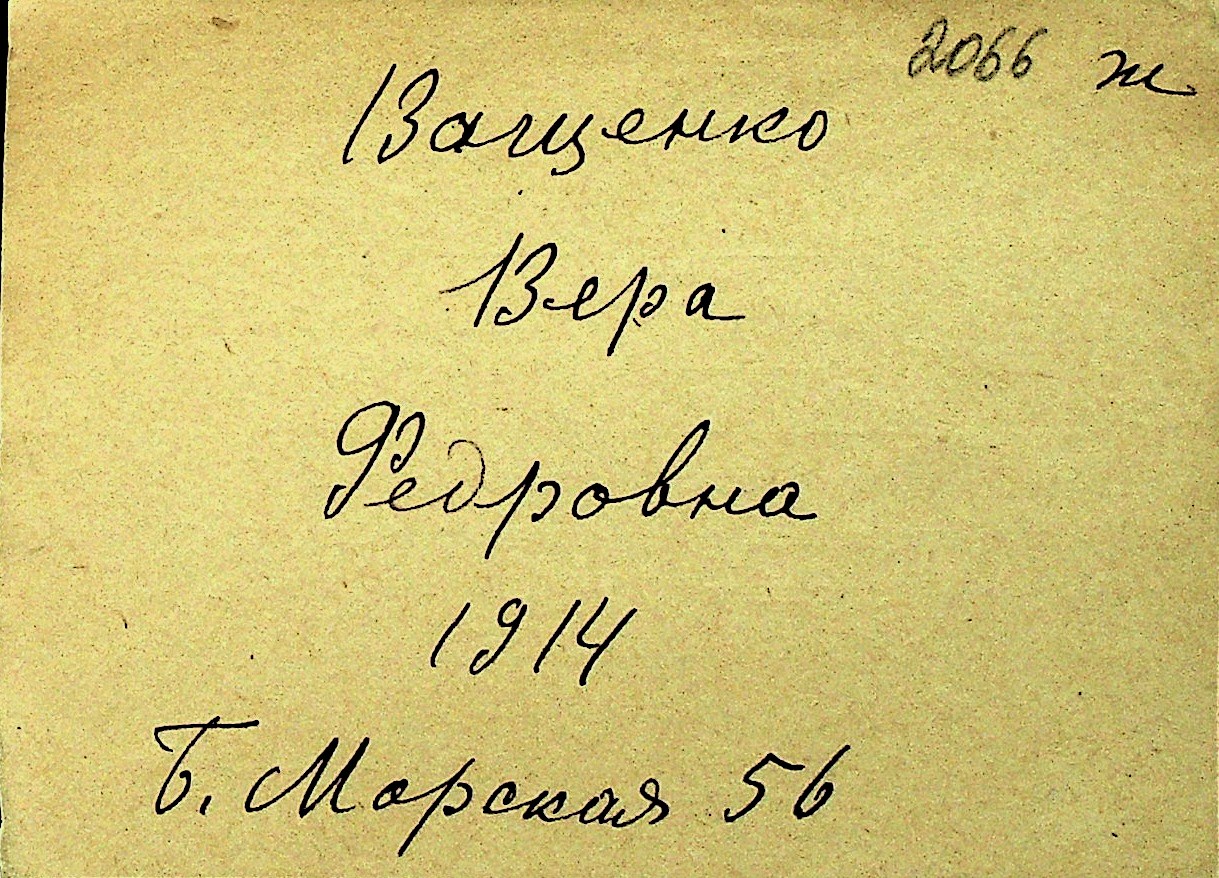 2066 ж
Ващенко
Вера
Федровна
1914
Б. Морская 56